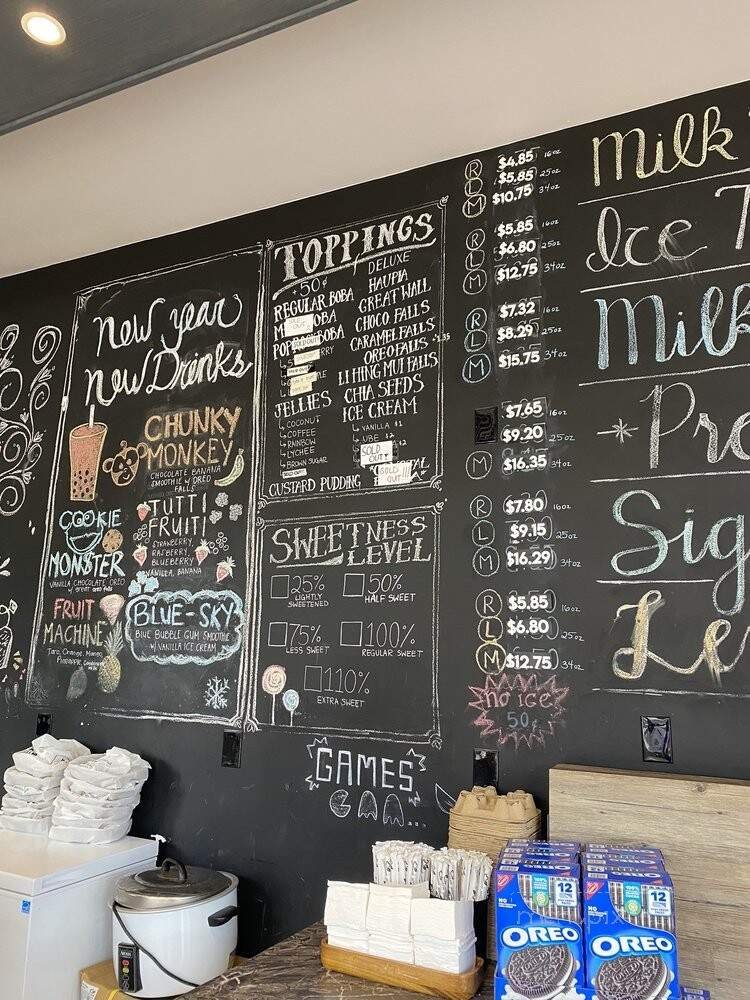 new year
new Drinks
CHUNKY
MONKEY
CHOCOLATE BANANA
SMOOTHIE w/ OREO
FALLS
COOKIE
MONSTER
VANILLA CHOCOLATE OREO
w/ great oreo falls
TUTTI
FRUITI
STRAWBERRY,
RASBERRY,
BLUEBERRY,
VANILLA, BANANA
FRUIT
MACHINE
Taro, Orange, Mango,
BLUE-SKY
BLUE BUBBLE GUM SMOOTHIE
w/ VANILLA ICE CREAM
TOPPINGS
+50¢
REGULAR BOBA
BOBA
BOBA
JELLIES
COCONUT
COFFEE
RAINBOW
LYCHEE
BROWN SUGAR
SOLD OUT!
CUSTARD PUDDING
DELUXE
HAUPIA
GREAT WALL
CHOCO FALLS
CARAMEL FALLS
OREO FALLS
LI HING MUI FALLS
CHIA SEEDS
ICE CREAM
VANILLA $1
UBE
SOLD
OUT!
SOLD
OUT!!!
SWEETNESS
LEVEL
25%
LIGHTLY
SWEETENED
50%
HALF SWEET
75%
LESS SWEET
100%
REGULAR SWEET
110%
EXTRA SWEET
GAMES
R $4.85 16oz
L $5.85 25oz
M $10.75 34oz
R $5.85 16oz
L $6.80 25oz
M $12.75 34oz
R $7.32 16oz
L $8.29 25oz
M $15.75 34oz
$7.65 16oz
$9.20 25oz
M $16.35 34oz
R $7.80 16oz
L $9.15 25oz
M $16.29 34oz
R $5.85 16oz
L $6.80 25oz
M $12.75 34oz
no ice
50¢
Milk
Ice T
Milk
*Pro
Sig
Le
12
OREO
12
OREO